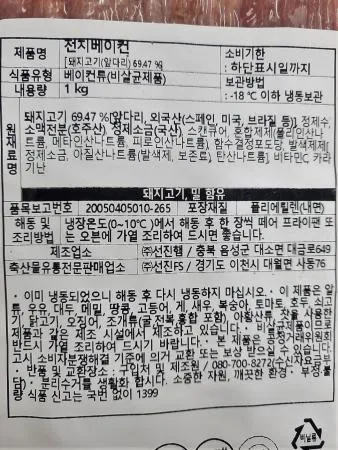 제품명
전지베이컨
[돼지고기(앞다리) 69.47 %]
소비기한
: 하단표시일까지
식품유형
베이컨류(비살균제품)
보관방법
: -18 ℃ 이하 냉동보관
내용량
1 kg
원재료명
돼지고기 69.47 %[앞다리, 외국산(스페인, 미국, 브라질 등)], 정제수,
소맥전분(호주산) 정제소금(국산), 스칸큐어, 혼합제제(폴리인산나
트륨, 메타인산나트륨, 피로인산나트륨) 함수결정포도당, 발색제제[
정제소금, 아질산나트륨(발색제, 보존료) 탄산나트륨] 비타민C 카라
기난
돼지고기, 밀 함유
품목보고번호
20050405010-265
포장재질
폴리에틸렌(내면)
해동 및
조리방법
냉장온도(0~10℃)에서 해동 후 한 장씩 떼어 프라이팬 또
는 오븐에 가열 조리하여 드시면 좋습니다.
제조업소
㈜선진햄 / 충북 음성군 대소면 대금로649
축산물유통전문판매업소
㈜선진FS / 경기도 이천시 대월면 사동76
· 이미 냉동되었으니 해동 후 다시 냉동하지 마십시오. · 이 제품은 알
류, 우유, 대두, 메밀, 땅콩, 고등어, 게, 새우, 복숭아, 토마토, 호두, 쇠고
기, 닭고기, 오징어, 조개류(굴,전복,홍합 포함), 아황산류, 잣을 사용한
제품과 같은 제조 시설에서 제조하고 있습니다. · 비살균제품이므로
반드시 가열 조리하여 드시기 바랍니다. · 본 제품은 공정거래위원회
고시 소비자분쟁해결 기준에 의거 교환 또는 보상 받으실 수 있습니다.
· 반품 및 교환장소 : 구입처 및 제조원 / 080-700-8272(수신자요금부
담) · 분리수거를 생활화 합시다. 소중한 자원, 깨끗한 환경 · 부정·불
량 식품 신고는 국번 없이 1399
비닐류